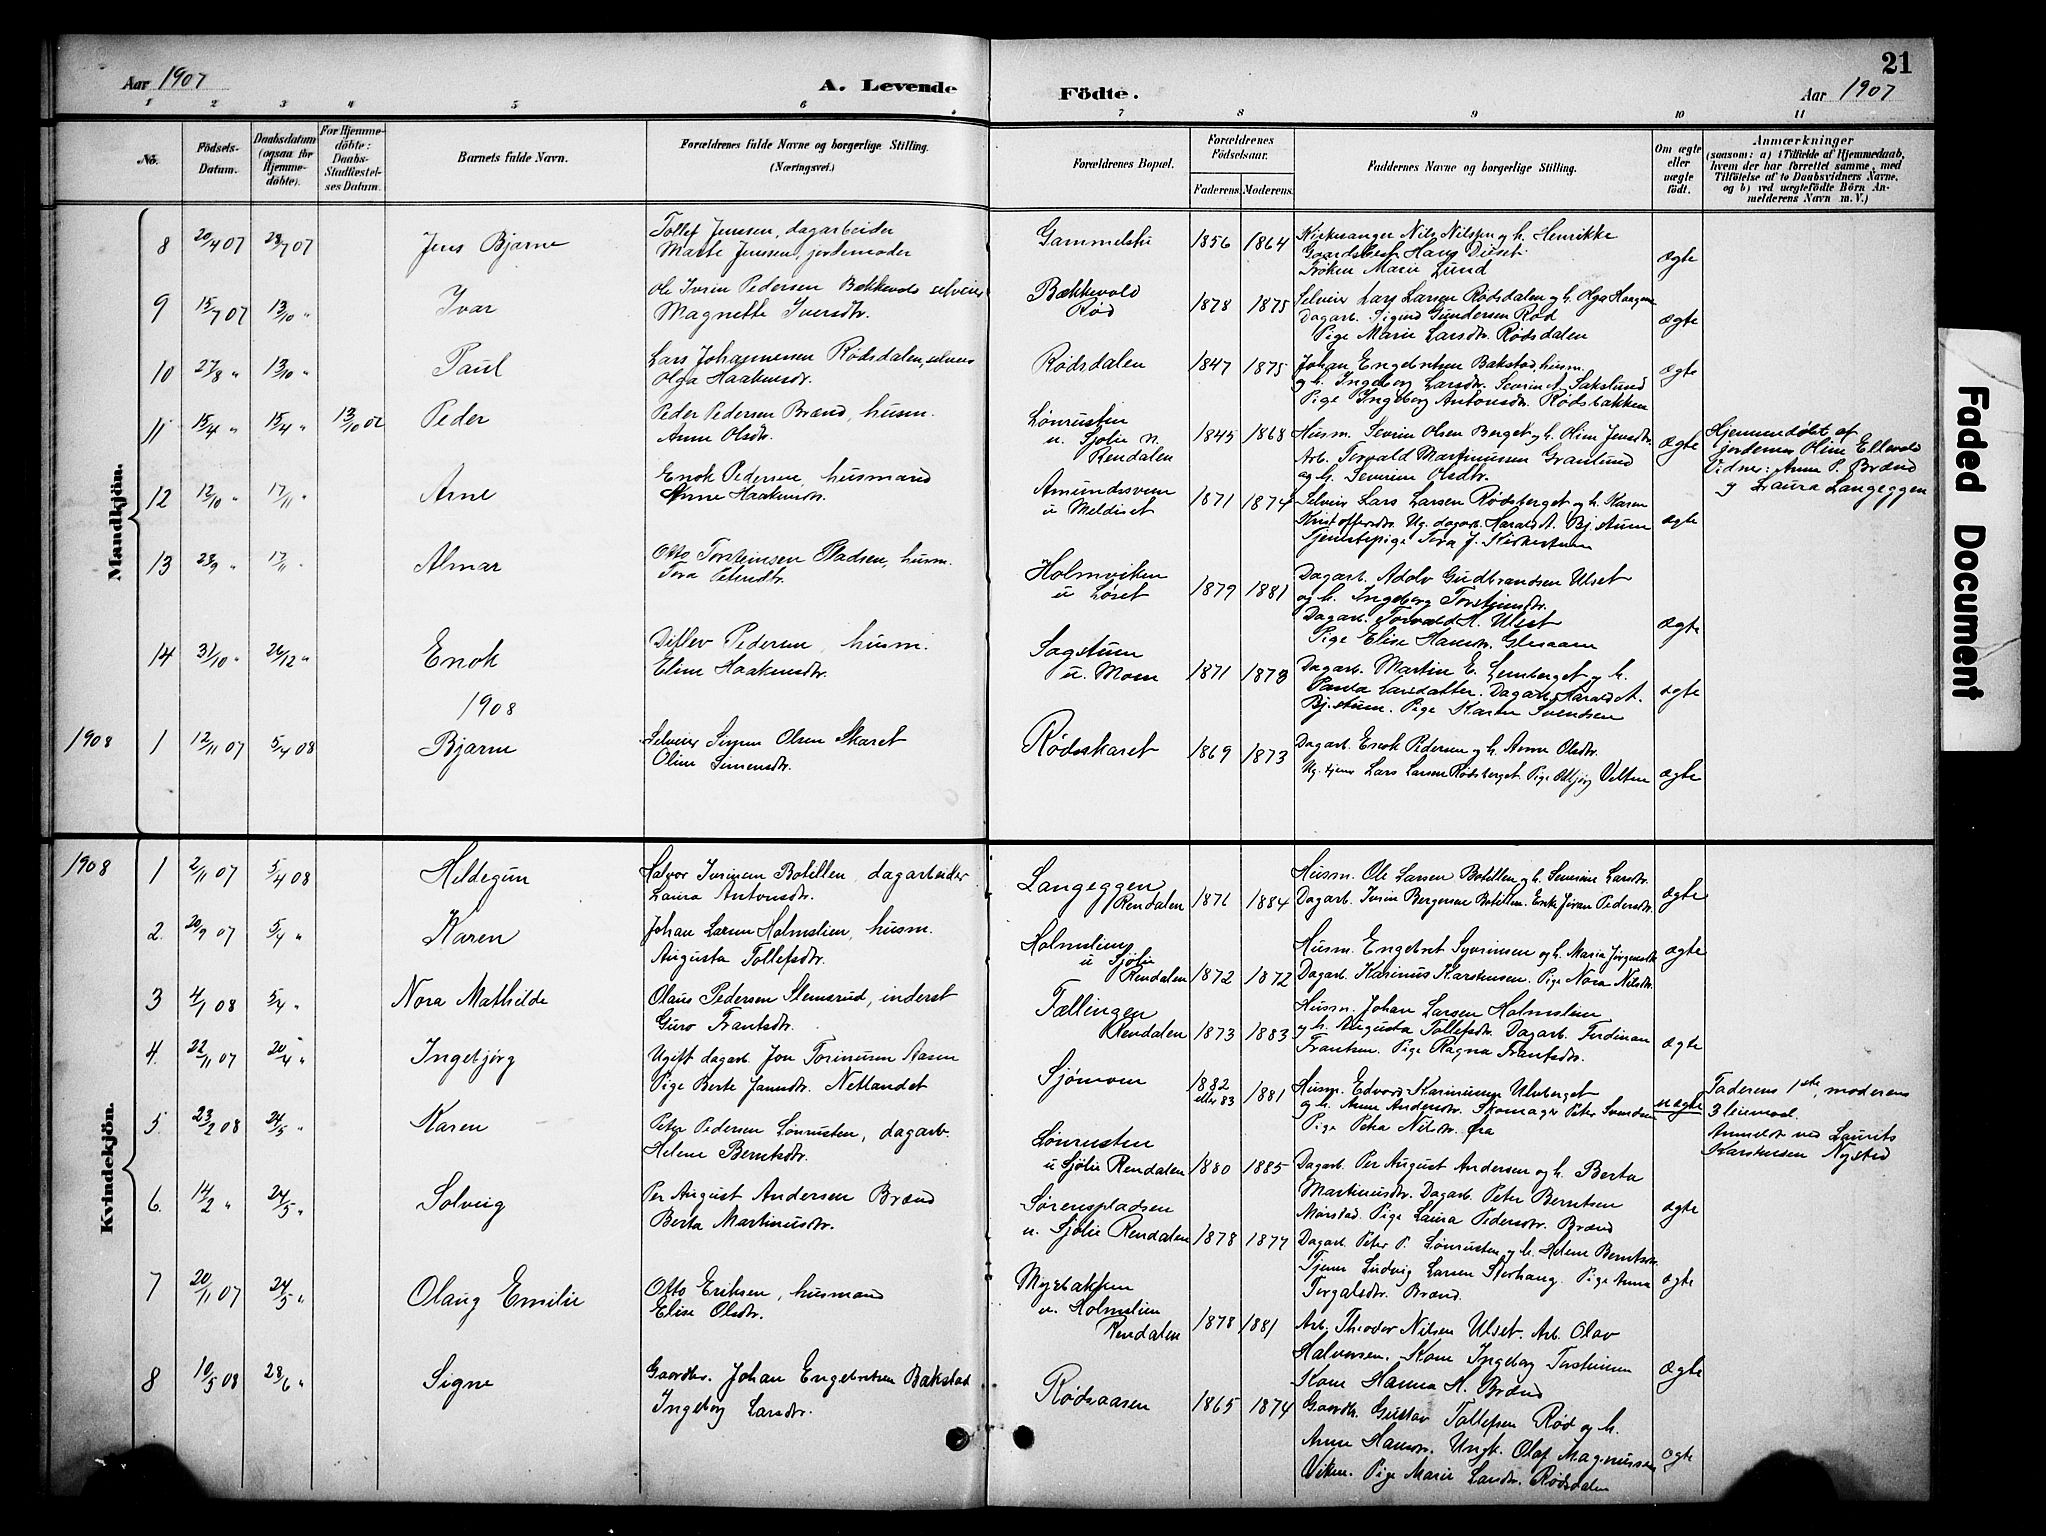 21
Aar 1907
A. Levende
Födte.
Aar 1907
1 2 3 4 5 6 7 8 9 10 11
No.
Födsels-
Datum.
Daabsdatum
(ogsaa for
Hjemme-
döbte).
For Hjemme-
döbte:
Daabs-
Stadfæstel-
ses Datum.
Barnets fulde Navn.
Forældrenes fulde Navne og borgerlige Stilling.
(Næringsvei.)
Forældrenes Bopæl.
Forældrenes
Födselsaar.
Faderens. Moderens.
Faddernes Navne og borgerlige Stilling.
Om ægte
eller
uægte
födt.
Anmærkninger
(saasom: a) i Tilfælde af Hjemmedaab,
hvem der har forrettet samme, med
Tilföielse af to Daabsvidners Navne,
og b) ved uægtefödte Börn An-
melderens Navn m. V.)
Mandkjön.
8 20/4 07 28/7 07 Jens Bjarne
Tollef Jenssen, dagarbeider
Marte Jenssen, jordemoder
1856 1864
Kirkesanger Nils Nilsen og h. Henrikke
Frøken Marie Lund
ægte
9 15/7 07 13/10 " Ivar
Ole Iversen Pedersen Bækkevold selveier
Magnette Iversdtr.
Bækkevold
Rød
1878 1875
Selveier Lars Larsen Rødsdalen og h. Olga Haagen
Dagarb. Sigurd Gundersen Rød
Pige Marie Larsdtr. Rødsdalen
ægte
10 27/8 " 13/10 " Paul
Lars Johannessen Rødsdalen, selveier
Olga Haakensdtr.
Rødsdalen
1847 1875
Johan Engebretsen Bakstad, husm.
og h. Ingeborg Larsdtr. Severin A. Sakslund
Pige Ingeborg Antonsdtr. Rødsbakken
ægte
11 15/4 " 15/4 " 13/10 07 Peder
Peder Pedersen Brænd, husm.
Anne Olsdtr.
Lønrusten
u. Sjølie N.
Rendalen
1845 1868
Husm. Severin Olsen Berget og h. Oline Jensdtr.
Arb. Torvald Martinussen Granlund
og h. Severine Olsdtr.
ægte
Hjemmedøbt af
jordemor Oline Ellevold
Vidner: Anne P. Brænd
og Laura Langeggen
12 12/10 " 17/11 " Arne
Enok Pedersen, husmand
Anne Haakensdtr.
Amundsveen
u. Meldiset
1871 1874
Selveier Lars Larsen Rødsberget og h. Karen
Kristoffersdtr. Ug. dagarb. Harald A. Bjøstuen
Tjenestepige Tora J. Kirkestuen
ægte
13 23/9 " 17/11 " Almar
Otto Torsteinsen Pladsen, husm.
Tora Petersdtr.
Holmviken
u Løset
1879 1881
Dagarb. Adolv Gudbrandsen Ulset
og h. Ingeborg Torsteinsdtr.
Dagarb. Torvald H. Ulset
Pige Elise Hansdtr. Glesaaen
ægte
14 31/10 " 26/12 " Enok
Detlev Pedersen, husm.
Eline Haakensdtr.
Sagstuen
u. Moen
1871 1878
Dagarb. Martin E. Lomberget og h.
Paula Larsdatter. Dagarb. Harald A.
Bjøstuen. Pige Karen Svendsen
ægte
1908
1908 1 12/11 07 5/4 08 Bjarne
Selveier Simen Olsen Skaret
Oline Simensdtr.
Rødsskaret
1869 1873
Dagarb. Enok Pedersen og h. Anne Olsdtr.
Ug. tjener Lars Larsen Rødsberget. Pige Asbjørg Velten
ægte
Kvindekjön.
1908 1 2/11 07 5/4 08 Hildegun
Halvor Iversen Botillen, dagarbeider
Laura Antonsdtr.
Langeggen
Rendalen
1871 1884
Husm. Ole Larsen Botillen og h. Severine Larsdtr.
Dagarb. Iver Bergersen Botillen. Enke Jøran Pedersdtr.
ægte
2. 20/9 07 5/4 " Karen
Johan Larsen Holmslien, husm.
Augusta Tollefsdtr.
Holmslien
u Sjølie
Rendalen
1872 1872
Husm. Engebret Syversen og h. Maria Jørgensdtr
Dagarb. Karinus Karstensen. Pige Nora Nilsdtr.
ægte
3 4/1 08 5/4 " Nora Mathilde
Olaus Pedersen Stensrud, inderst
Guro Frantsdtr.
Tællingen
Rendalen
1873 1883
Husm. Johan Larsen Holmslien
og h. Augusta Tollefsdtr. Dagarb. Ferdinan
Frantsen. Pige Ragna Frantsdtr.
ægte
4. 22/11 07 20/4 " Ingebjørg
Ugift dagarb. Jon Torinusen Aasen
Pige Berte Jansdtr. Netlandet
Sjømoen
1882
eller 83
1881
Husm. Edvard Karinusen Ulvberget
og h. Anne Andersdtr. Skomager Peter Svendsen
Pige Petra Nilsdtr. Øra
uægte
Faderens 1ste, moderens
3 leiermaal.
Anmeldt ved Laurits
Karstensen Nysted
5. 23/2 08 24/5 " Karen
Peter Pedersen Lønrusten, dagarb.
Helene Berntsdtr.
Lønrusten
u Sjølie Rendalen
1880 1885
Dagarb. Per August Andersen og h. Berta
Martinusdtr. Dagarb. Peter Berntsen
Mørstad. Pige Laura Pedersdtr. Brænd
ægte
6. 14/2 " 24/5 " Solveig
Per August Andersen Brænd
Berta Martinusdtr.
Sørenspladsen
u. Sjølie Rendalen
1878 1877
Dagarb. Peter P. Lønrusten og h. Helene Berntsdtr.
Tjener Ludvig Larsen Storhaug. Pige Anna
Torgalsdtr. Brænd.
ægte
7 20/11 07 24/5 " Olaug Emilie
Otto Eriksen, husmand
Elise Olsdtr.
Myrbakken
u. Holmslien
Rendalen
1878 1881
Arb. Theodor Nilsen Ulset. Arb. Olav
Halvorsen. Kone Ingeborg Torsteinsen
Kone Hanna H. Brænd
ægte
8 10/5 08 28/6 " Signe
Gaardbr. Johan Engebretsen Bakstad
Ingeborg Larsdtr.
Rødsaasen
1865 1874
Gaardbr. Gustav Tollefsen Rød og h.
Anne Hansdtr. Ungk. Olaf Magnussen
Viken. Pige Marie Larsdtr. Rødsdalen
ægte
Faded Document